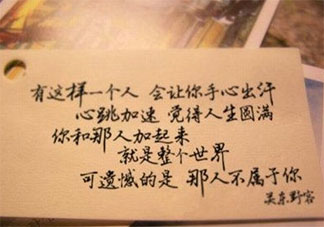 有这样一个人 会让你手心出汗
心跳加速 觉得人生圆满
你和那人加起来
就是整个世界
可遗憾的是 那人不属于你
吴东野客